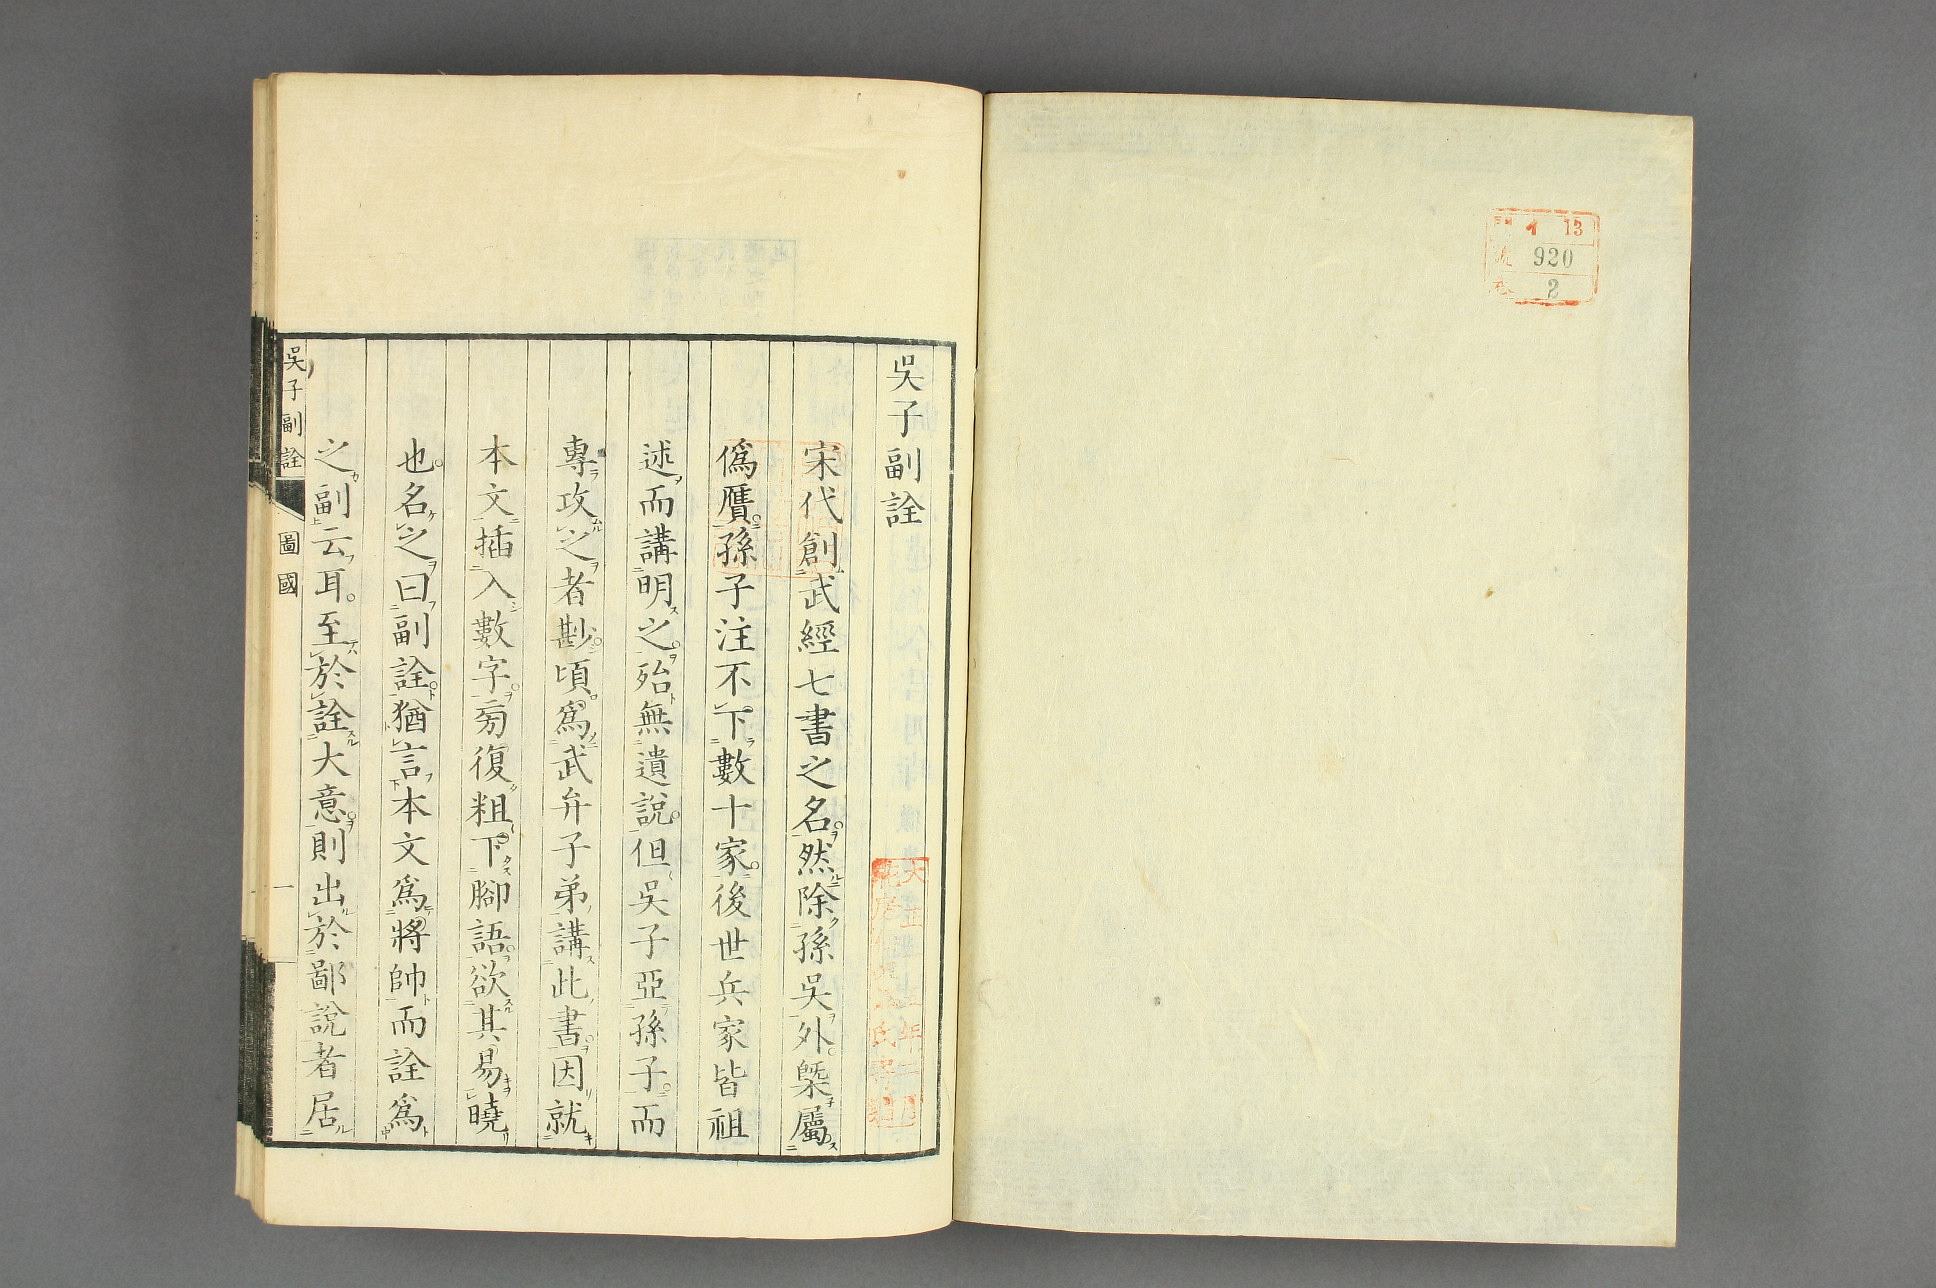 13
920
2
吳子副詮
宋代創武經七書之名然除孫吳外槩屬
僞贋孫子注不下數十家後世兵家皆祖
述而講明之殆無遺說但吳子亞孫子而
專攻之者尠頃爲武弁子弟講此書因就
本文插入數字旁復粗下腳語欲其易曉
也名之曰副詮猶言本文爲將帥而詮爲
之副云耳至於詮大意則出於鄙說者居
吳子副詮
圖國
一